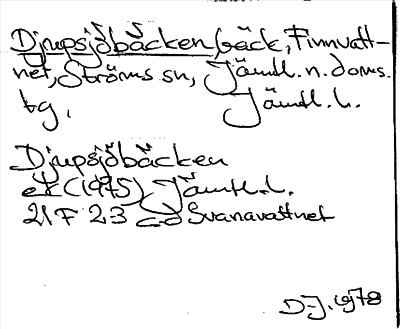 Djupsjöbäcken, bäck, Finnvatt-
net, Ströms sn, Jämtl. n. doms.
bg, Jämtl. l.
Djupsjöbäcken
ek (1975) Jämtl. l.
21 F 2 3 Svanavattnet
D-J. 1978